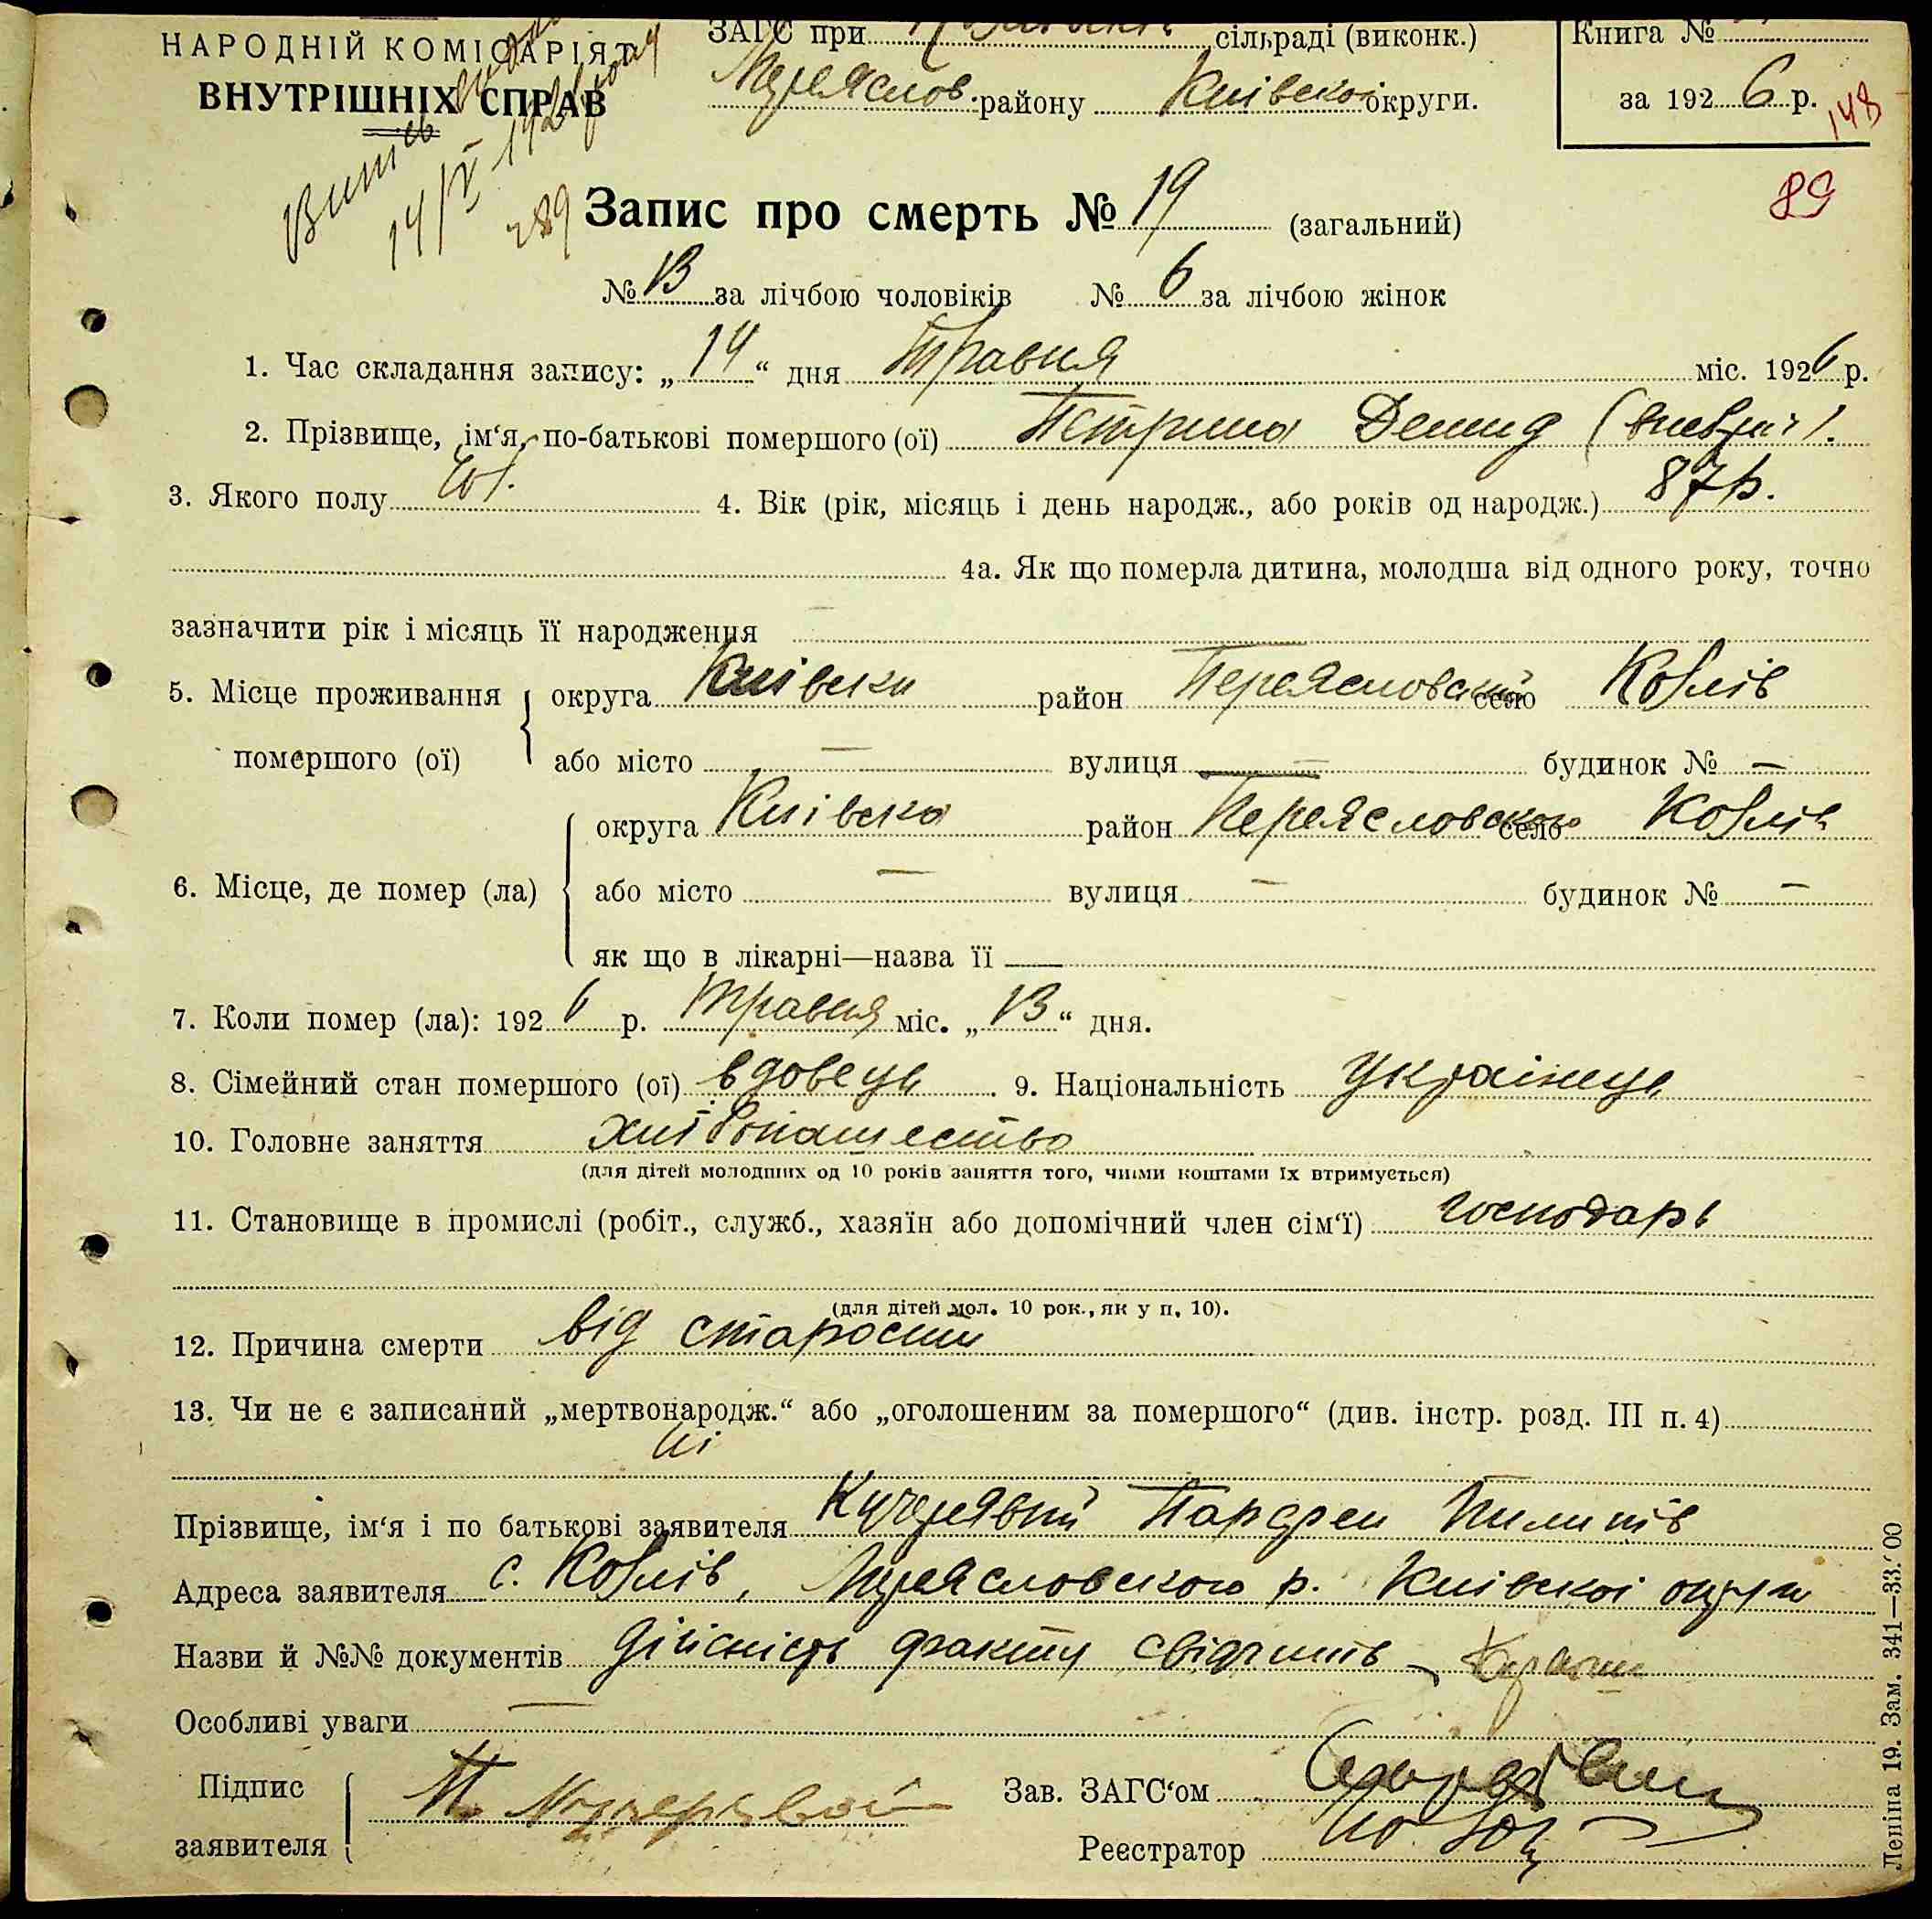 НАРОДНІЙ КОМІСАРІЯТ
ВНУТРІШНІХ СПРАВ
ЗАГС при сільраді (виконк.)
Переяслов. району Київскої округи.
Книга №
за 1926 р.
148
89
Випись видана
14/V 192
289
Запис про смерть № 19 (загальний)
№ 13 за лічбою чоловіків № 6 за лічбою жінок
1. Час складання запису: „14“ дня Травня міс. 1926 р.
2. Прізвище, ім‘я, по-батькові помершого (ої) Петрина Демид
3. Якого полу 4. Вік (рік, місяць і день народж., або років од народж.) 87 р.
4а. Як що померла дитина, молодша від одного року, точно
зазначити рік і місяць її народження
5. Місце проживання помершого (ої) округа Київски район Переясловский село Ковлів
або місто — вулиця — будинок № —
6. Місце, де помер (ла) округа Київска район Переясловского село Ковлів
або місто — вулиця — будинок № —
як що в лікарні—назва її —
7. Коли помер (ла): 1926 р. Травня міс. „13“ дня.
8. Сімейний стан помершого (ої) вдовець. 9. Національність Українець
10. Головне заняття хлібопашество
(для дітей молодших од 10 років заняття того, чиїми коштами їх втримується)
11. Становище в промислі (робіт., служб., хазяїн або допомічний член сім‘ї) господарь
(для дітей мол. 10 рок., як у п. 10).
12. Причина смерти від старости
13. Чи не є записаний „мертвонародж.“ або „оголошеним за помершого“ (див. інстр. розд. III п. 4)
ні
Прізвище, ім‘я і по батькові заявителя Кучерявий Парфен Пилипів
Адреса заявителя с. Ковлів, Переясловского р. Київскої округи
Назви й №№ документів дійсність факту свідчить
Особливі уваги —
Підпис заявителя П. Кучерявый
Зав. ЗАГС‘ом
Реєстратор
Леніна 19. Зам. 341—33.